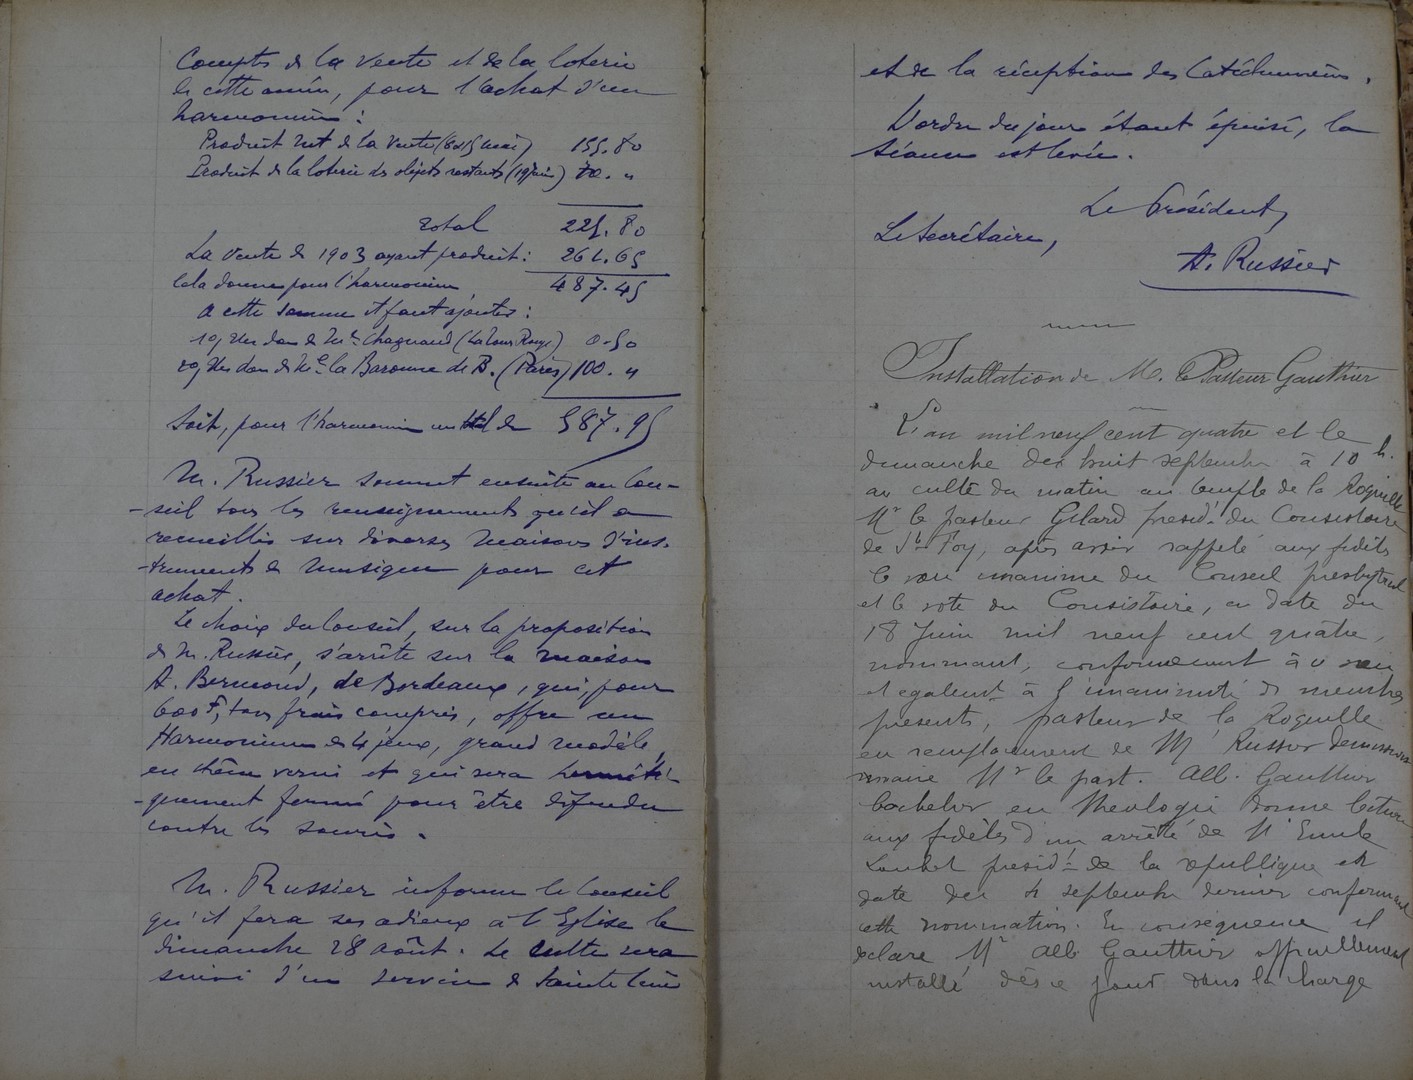 Compte de la vente et de la loterie
de cette année, pour l'achat d'un
harmonium :
Produit net de la vente (6 et 5 mai) 155.80
Produit de la loterie des objets restants (19 juin) 70. "
Total 225.80
La vente de 1903 ayant produit : 261.65
Cela donne pour l'harmonium 487.45
A cette somme il faut ajouter :
1o) Un don de Mr Chagnaud (La Tour Rouge) 0.50
2o) Un don de Me la Baronne de B. (Paris) 100. "
Soit, pour l'harmonium un total de 587.95
M. Russier soumet ensuite au Con-
-seil tous les renseignements qu'il a
recueillis sur diverses maisons d'ins-
-truments de musique pour cet
achat.
Le choix du Conseil, sur la proposition
de M. Russier, s'arrête sur la maison
A. Bermond, de Bordeaux, qui, pour
600 F, tous frais compris, offre un
Harmonium de 4 jeux, grand modèle,
en chêne verni et qui sera herméti-
-quement fermé pour être défendu
contre les souris.
M. Russier informe le Conseil
qu'il fera ses adieux à l'Eglise le
dimanche 28 Août. Le culte sera
suivi d'un service de Sainte Cène
et de la réception des Catéchumènes.
L'ordre du jour étant épuisé, la
séance est levée.
Le Président,
Le Secrétaire,
A. Russier
Installation de M. le Pasteur Gauthier
L'an mil neuf cent quatre et le
dimanche dix huit septembre à 10 h.
au culte du matin au temple de la Roquille
Mr le pasteur Gelard présidt du Consistoire
de Ste Foy, après avoir rappelé aux fidèles
le vœu unanime du Conseil presbytéral
et le vote du Consistoire, en date du
18 Juin mil neuf cent quatre,
nommant, conformément à ce vœu
et également à l'unanimité des membres
présents, pasteur de la Roquille
en remplacement de Mr Russier démission-
naire Mr le past. Alb. Gauthier
bachelier en théologie donne lecture
aux fidèles d'un arrêté de Mr Emile
Loubet présidt de la république en
date du 4 septembre dernier confirmant
cette nomination. En conséquence il
déclare Mr Alb Gauthier officiellement
installé dès ce jour dans la charge